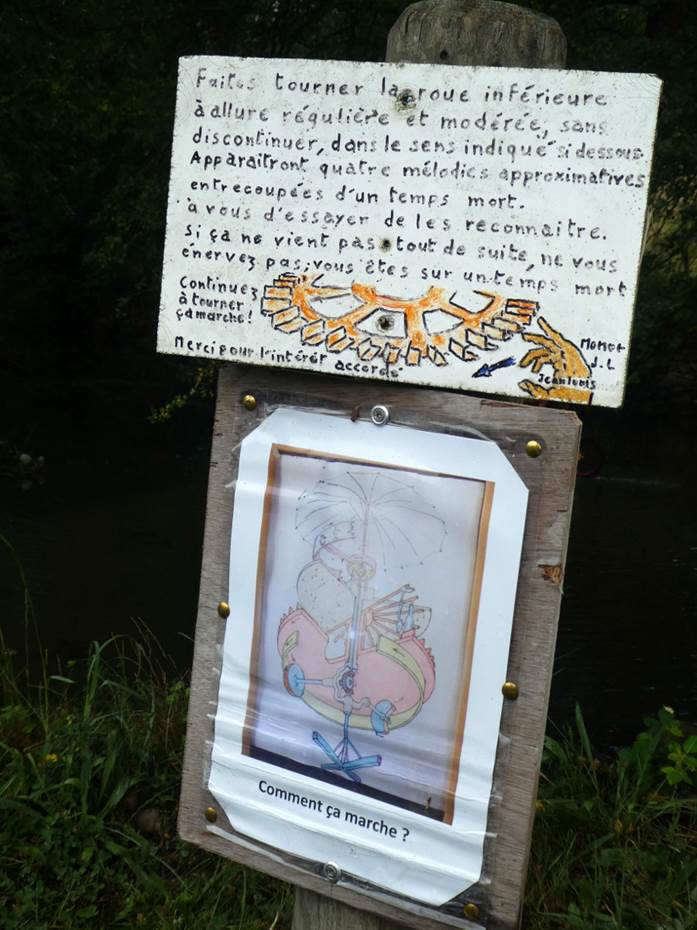 Faites tourner la roue inférieure
à allure régulière et modérée, sans
discontinuer, dans le sens indiqué si dessous.
Apparaitront quatre mélodies approximatives
entrecoupées d'un temps mort.
à vous d'essayer de les reconnaitre.
si ça ne vient pas tout de suite, ne vous
énervez pas, vous êtes sur un temps mort
Continuez
à tourner
ça marche!
Merci pour l'intérêt accordé
J.L
Jean Louis
Comment ça marche ?